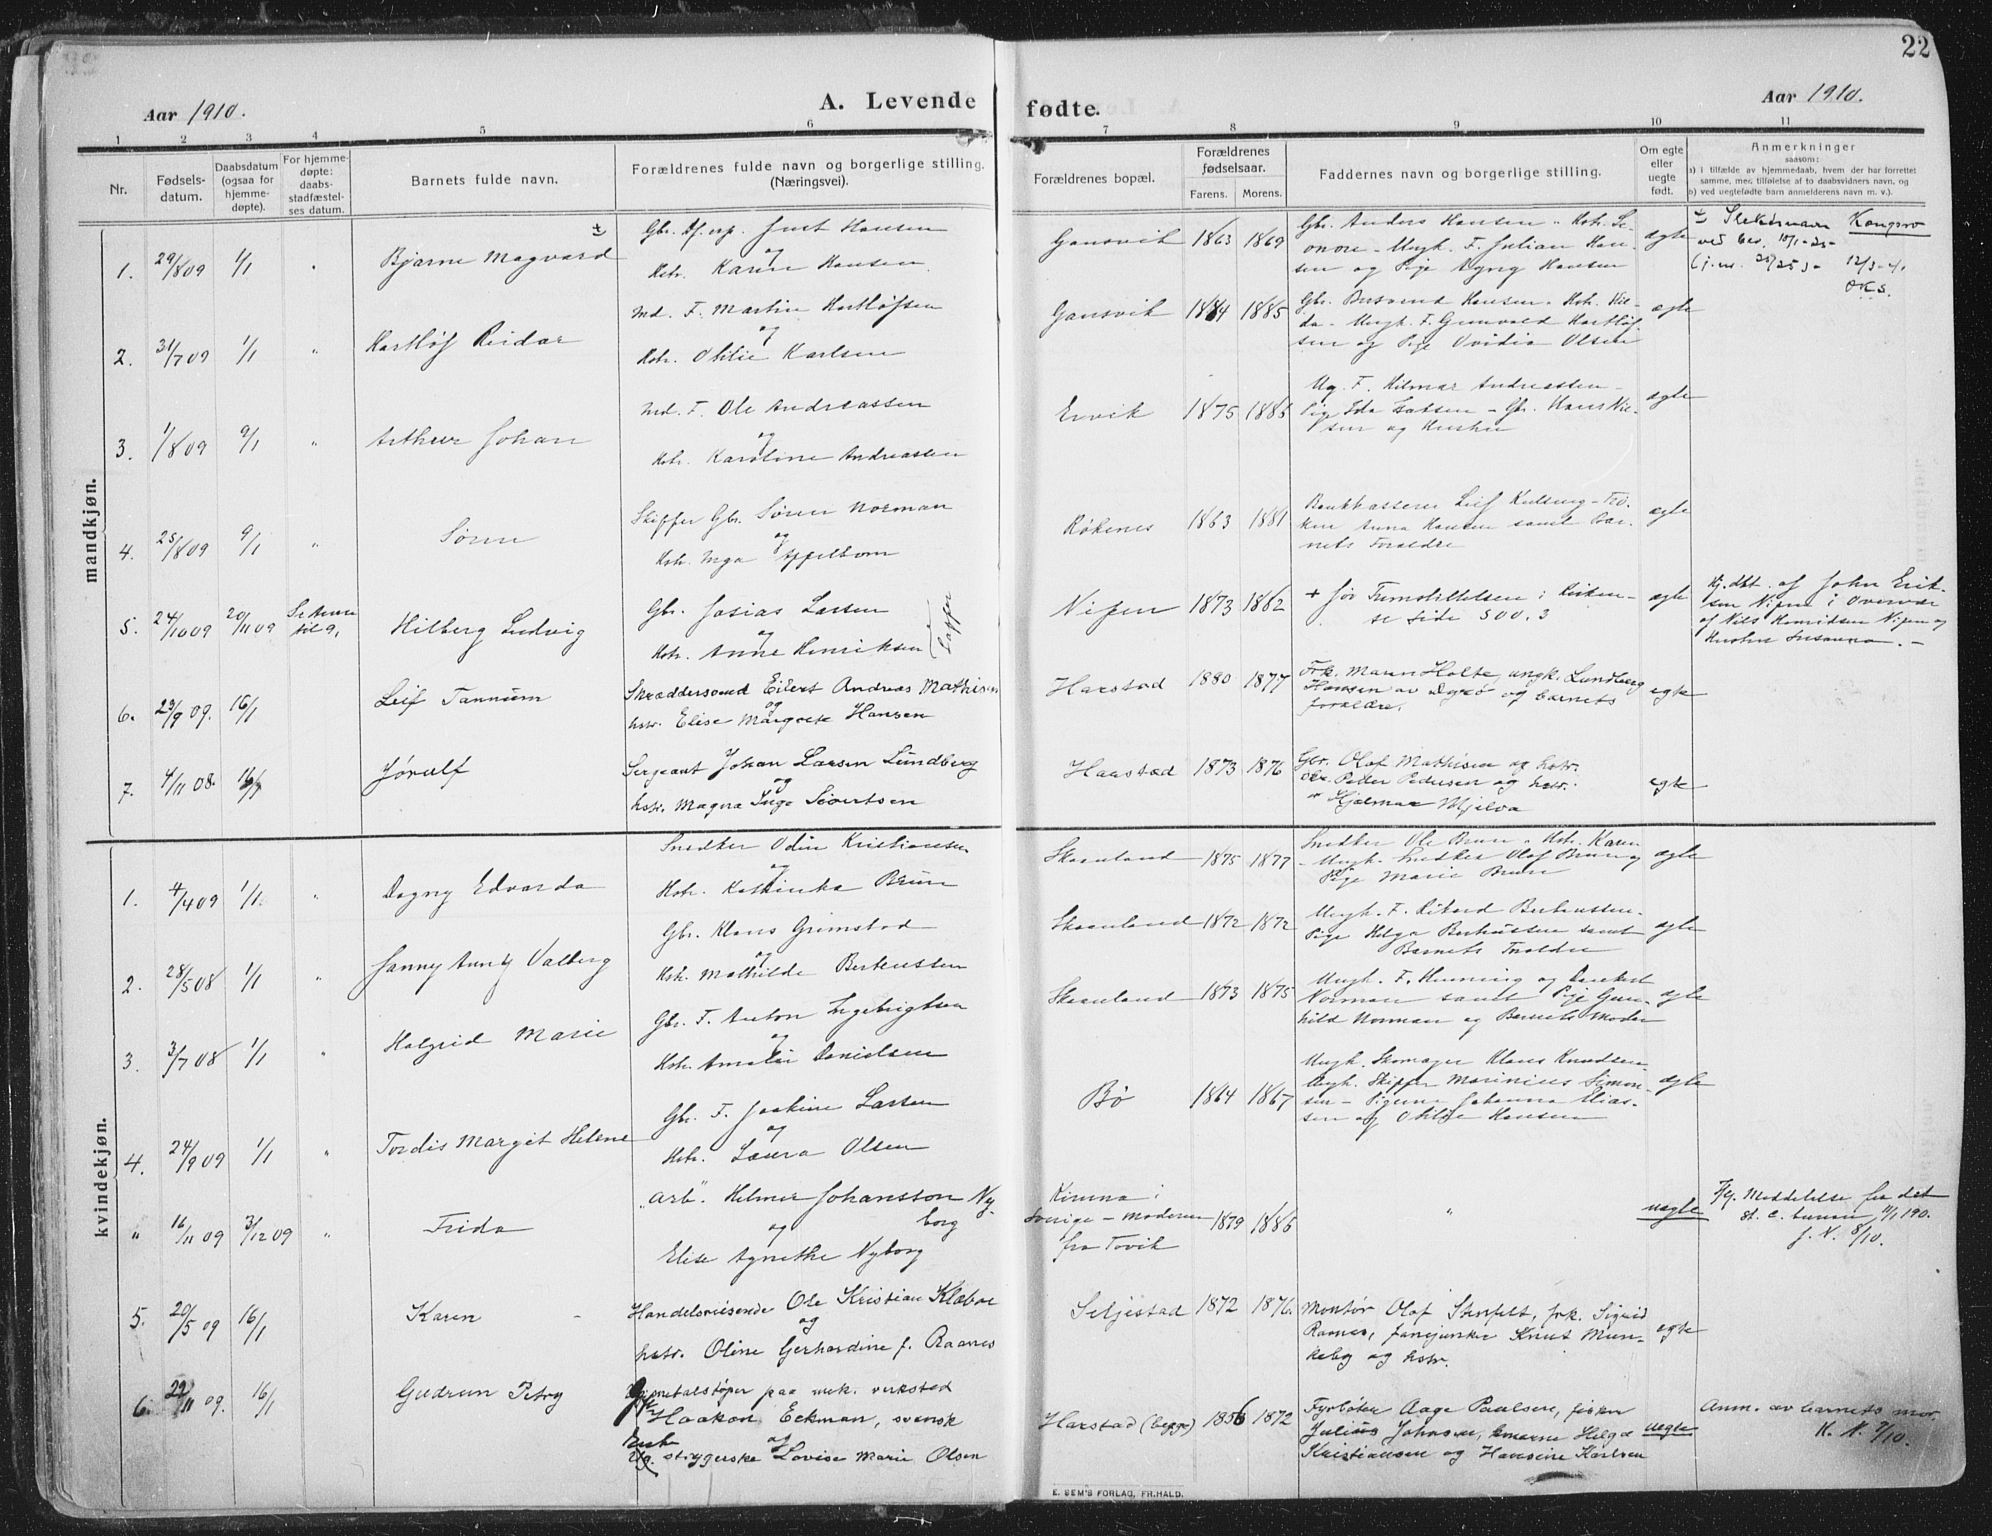 22
Aar 1910.
A. Levende fødte.
Aar 1910.
1 2 3 4 5 6 7 8 9 10 11
Nr.
Fødsels-
datum.
Daabsdatum
(ogsaa for
hjemme-
døpte).
For hjemme-
døpte:
daabs-
stadfæstel-
ses datum.
Barnets fulde navn.
Forældrenes fulde navn og borgerlige stilling.
(Næringsvei).
Forældrenes bopæl.
Forældrenes
fødselsaar.
Farens. Morens.
Faddernes navn og borgerlige stilling.
Om egte
eller
uegte
født.
Anmerkninger
saasom:
a) i tilfælde av hjemmedaab, hvem der har forrettet
samme, med tilføielse af to daabsvidners navn, og
b) ved uegtefødte barn anmelderens navn m. v.).
mandkjøn.
1. 29/8 09 1/1 " Bjarne Magvard ±
Gbr. Just Hansen
og
Hstr. Karen Hansen
Gansvik 1863 1869
Gbr. Anders Hansen - Hstr. Le-
onore - Ungk. F. Julian Han-
sen og Pige Hansen
egte
± Slektsnavn Kongsro
ved bev. 10/1-25-
12/3-41
OKS.
2. 31/7 09 1/1 " Hartløf Reidar
md. F. Martin Hartløfsen
og
Hstr. Otilie Karlsen
Gansvik 1884 1885
Gbr. Hansen - Hstr. Hil-
da - Ungk. F. Gunvald Hartløf-
sen og Pige Ovidia Olsen
egte
3. 1/8 09 9/1 " Arthur Johan
md. F. Ole Andreassen
og
Hstr. Karoline Andreassen
Ervik 1875 1885
Ug. F. Hilmar Andreassen -
Pige Ida - Gbr. Hans Nil-
sen og Hustru
egte
4. 25/8 09 9/1 " Søren
Skipper Gbr. Søren Norman
og
Hstr. Inga Appelbom
Røkenes 1863 1881
Bankkasserer Leif - Frø-
ken Anna Hansen samt Bar-
nets Forældre
egte
5. 24/10 09 20/11 09 Se Anm.
til 9.
Hilberg Ludvig
Gbr. Josias Larsen
og
Hstr. Anne Henriksen
(Lapper
Nipen 1873 1862
+ før Fremstillelsen i Kirken -
se Side 500. 3
egte
Hj.dbt. af John Erik-
sen Nipen i Overvær
af Nils Henriksen Nipen og
Hustru Susanna. -
6. 23/9 09. 16/1 Leif Tannum
Skræddersvend Eilert Andreas Mathisen
og
hstr. Elise Margrete Hansen
Harstad 1880 1877
Frk. Maren Holte, ungk. Lundberg
Hansen av Dyrø og barnets
forældre.
egte
7. 4/11 08. 16/1 Jørulf
Sergeant Johan Larsen Lundberg
og
hstr. Magna Inga Sivertsen
Harstad 1873 1876
Gbr. Olaf Mathisen og hstr.
do. Peder Pedersen og hstr.
" Hjalmar Mjelva
egte
kvindekjøn.
1. 4/4 09 1/1 " Dagny Edvarda
Snedker Odin Kristiansen
og
Hstr. Kathinka Brun
Skaanland 1875 1877
Snedker Ole Brun - Hstr. Karen
- Ungk. Snedker Olaf Brun og
Pige Marie Brun
egte
2. 28/5 08 1/1 " Fanny Valberg
Gbr. Klaus Grimstad
og
Hstr. Mathilde Berteussen
Skaanland 1872 1872
Ungk. F. Rikard Berteussen -
Pige Helga Berteussen samt
Barnets Forældre
egte
3. 3/7 08 1/1 " Halgrid Marie
Gbr. F. Anton Ingebrigtsen
og
Hstr. Amalie Danielsen
Skaanland 1873 1875
Ungk. F. Henning og
Norman samt Pige Gun-
hild Norman og Barnets Moder
egte
4. 24/9 09 1/1 " Tordis Margit Helene
Gbr. F. Joakim Larsen
og
Hstr. Laura Olsen
Bø 1864 1867
Ungk. Skomager Klaus Knudsen
Ungk. Skipper Marinius Simon-
sen - Pigerne Johanna Elias-
sen og Otilie Hansen
egte
" 16/11 09 3/12 09 " Frida
"Arb". Helmer Johansson Ny-
borg
og
Elise Agnethe Nyborg
Kiruna i
Sverige - Moderen
fra Tovik
1879 1886
"
uegte
Flg. Meddelelse fra det
st. c. bureau 11/1 190.
J. N. 8/10.
5. 20/5 09 16/1 Karen
Handelsreisende Ole Kristian Klæboe
og
hstr. Oline Gerhardine f. Raanes
Seljestad 1872 1876.
Montør Olaf Stenfelt, frk. Sigrid
Raanes, fanejunker Knut Mun-
keby og hstr.
egte
6. 22/11 09. 16/1 Gudrun Petry
paa mek. verksted
Haakon Eckman, svensk
og
Ug. strygerske Lovise Marie Olsen
Harstad (begge) 1856 1872
Fyrbøter Aage Paulsen, fisker
Julius Johnsen, Helga
Kristiansen og Hansine Karlsen
uegte
Anm. av barnets mor
K. N. 7/10.
E. SEM'S FORLAG, FR.HALD.